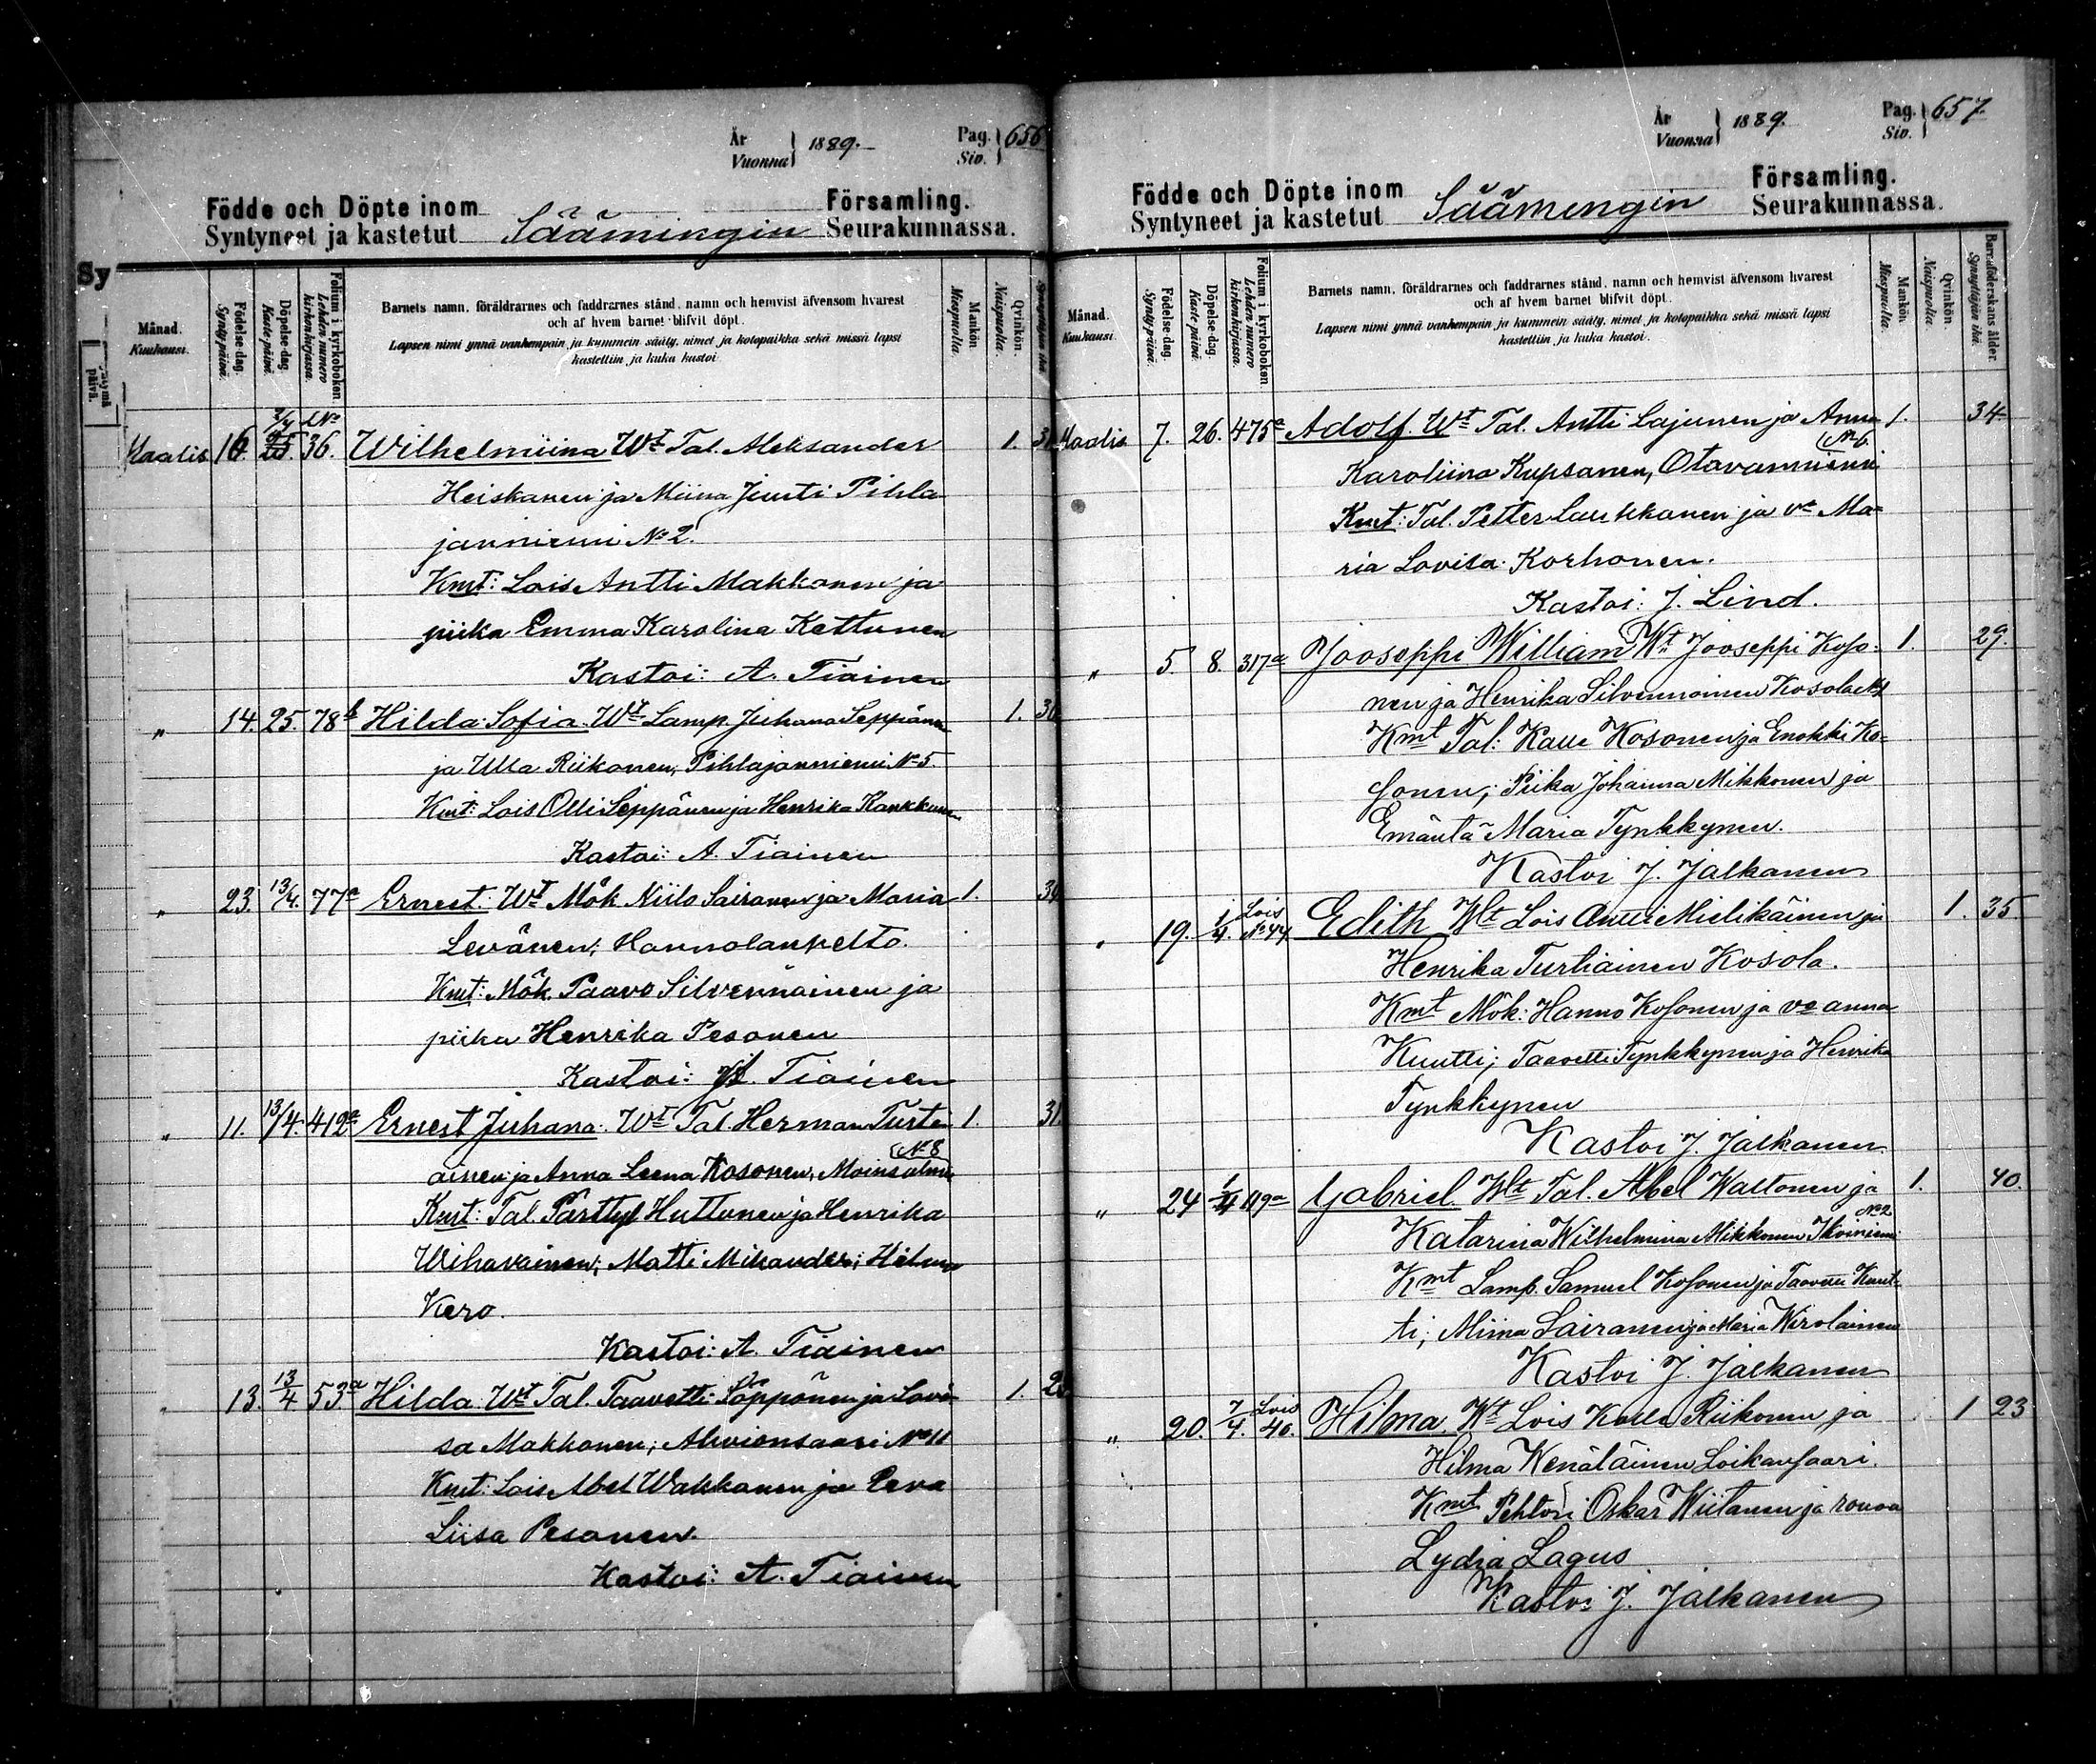 År
Vuonna } 1889.
Pag.
Siv. } 656
Födde och Döpte inom Säämingin Församling.
Syntyneet ja kastetut Seurakunnassa.
Sy
Månad.
Kuukausi.
Födelse dag.
Synty-päivä.
Döpelse-dag.
Kaste-päivä.
Folium i kyrkoboken.
Lehden numero kirkonkirjassa.
Barnets namn, föräldrarnes och faddrarnes stånd, namn och hemvist äfvensom hvarest
och af hvem barnet blifvit döpt.
Lapsen nimi ynnä vanhempain ja kummein sääty, nimet ja kotopaikka sekä missä lapsi
kastettiin ja kuka kastoi.
Mankön.
Miespuolia.
Qvinkön.
Naispuolia.
Maalis 16. 36. Wilhelmiina Wt Tal. Aleksander 1.
Heiskanen ja Miina Juuti Pihla
janniemi No 2.
Kmt: Lois Antti Makkonen ja
piika Emma Karolina Kettunen
Kastoi: A. Tiainen
" 14. 25. 78b Hilda Sofia. Wt Lamp. Juhana Seppänen 1. 30
ja Ulla Riikonen, Pihlajanniemi No 5.
Kmt: Lois Olli Seppänen ja Henrika Kankkunen
Kastoi: A. Tiainen
" 23. 13/4. 77a Ernest. Wt Mök Niilo Sairanen ja Maria 1. 39
Levänen; Hannolanpelto.
Kmt: Mök. Paavo Silvennäinen ja
piika Henrika Pesonen
Kastoi: A. Tiainen
" 11. 13/4. 412a Ernest Juhana. Wt Tal. Herman Turti 1. 31.
ainen ja Anna Leena Kosonen, Moinsalmi No 8
Kmt: Tal. Parttyl Huttonen ja Henrika
Wihavainen; Matti Mikander; Hilma
Kero.
Kastoi: A. Tiainen
" 13. 13/4 53a Hilda. Wt Tal. Taavetti Söppönen ja Lovi 1.
sa Makkonen; Ahvionsaari No 11
Kmt: Lois Abel Wakkanen ja Eeva
Liisa Pesonen.
Kastoi: A. Tiainen
År
Vuonna } 1889.
Pag.
Siv. } 657.
Födde och Döpte inom Säämingin Församling.
Syntyneet ja kastetut Seurakunnassa.
Månad.
Kuukausi.
Födelse dag.
Synty-päivä.
Döpelse-dag.
Kaste-päivä.
Folium i kyrkoboken.
Lehden numero kirkonkirjassa.
Barnets namn, föräldrarnes och faddrarnes stånd, namn och hemvist äfvensom hvarest
och af hvem barnet blifvit döpt.
Lapsen nimi ynnä vanhempain ja kummein sääty, nimet ja kotopaikka sekä missä lapsi
kastettiin ja kuka kastoi.
Mankön.
Miespuolia.
Qvinkön.
Naispuolia.
Barnaföderskans ålder.
Synnyttäjän ikä.
Maalis 7. 26. 475a Adolf. Wt Tal. Antti Lajunen ja Anna 1. 34
Karoliina Kupsanen, Otavanniemi No 6.
Kmt: Tal. Petter Laukkanen ja va Ma=
ria Lovisa Korhonen.
Kastoi: J. Lind.
" 5. 8. 317a Jooseppi William Wt Jooseppi Koso- 1. 29.
nen ja Henrika Silvennoinen Kosola
Kmt Tal: Kalle Kosonen ja Enokki Ko=
sonen; Piika Johanna Mikkonen ja
Emäntä Maria Tynkkynen.
Kastoi J. Jalkanen
" 19. 1/4. Lois No 44 Edith Wt Lois Antti Mielikäinen ja 1. 35.
Henrika Turtiainen Kosola.
Kmt Mök: Hannu Kosonen ja vo anna
Kuutti; Taavetti Tynkkynen ja Henrika
Tynkkynen
Kastoi J. Jalkanen
" 24 119a Gabriel. Wt Tal. Abel Waltonen ja 1. 40.
Katarina Wilhelmina Mikkonen No 2
Kmt Lamp. Samuel Kosonen ja Taavetti Kuut-
ti; Miina Sairanen ja Maria Wirolainen
Kastoi J. Jalkanen
" 20. 7/4. Lois 40. Hilma Wt Lois Kalle Riikonen ja 1 23
Hilma Wenäläinen Loikansaari.
Kmt Pehtori Oskar Wiitanen ja rouva
Lydia Lagus
Kastoi J. Jalkanen